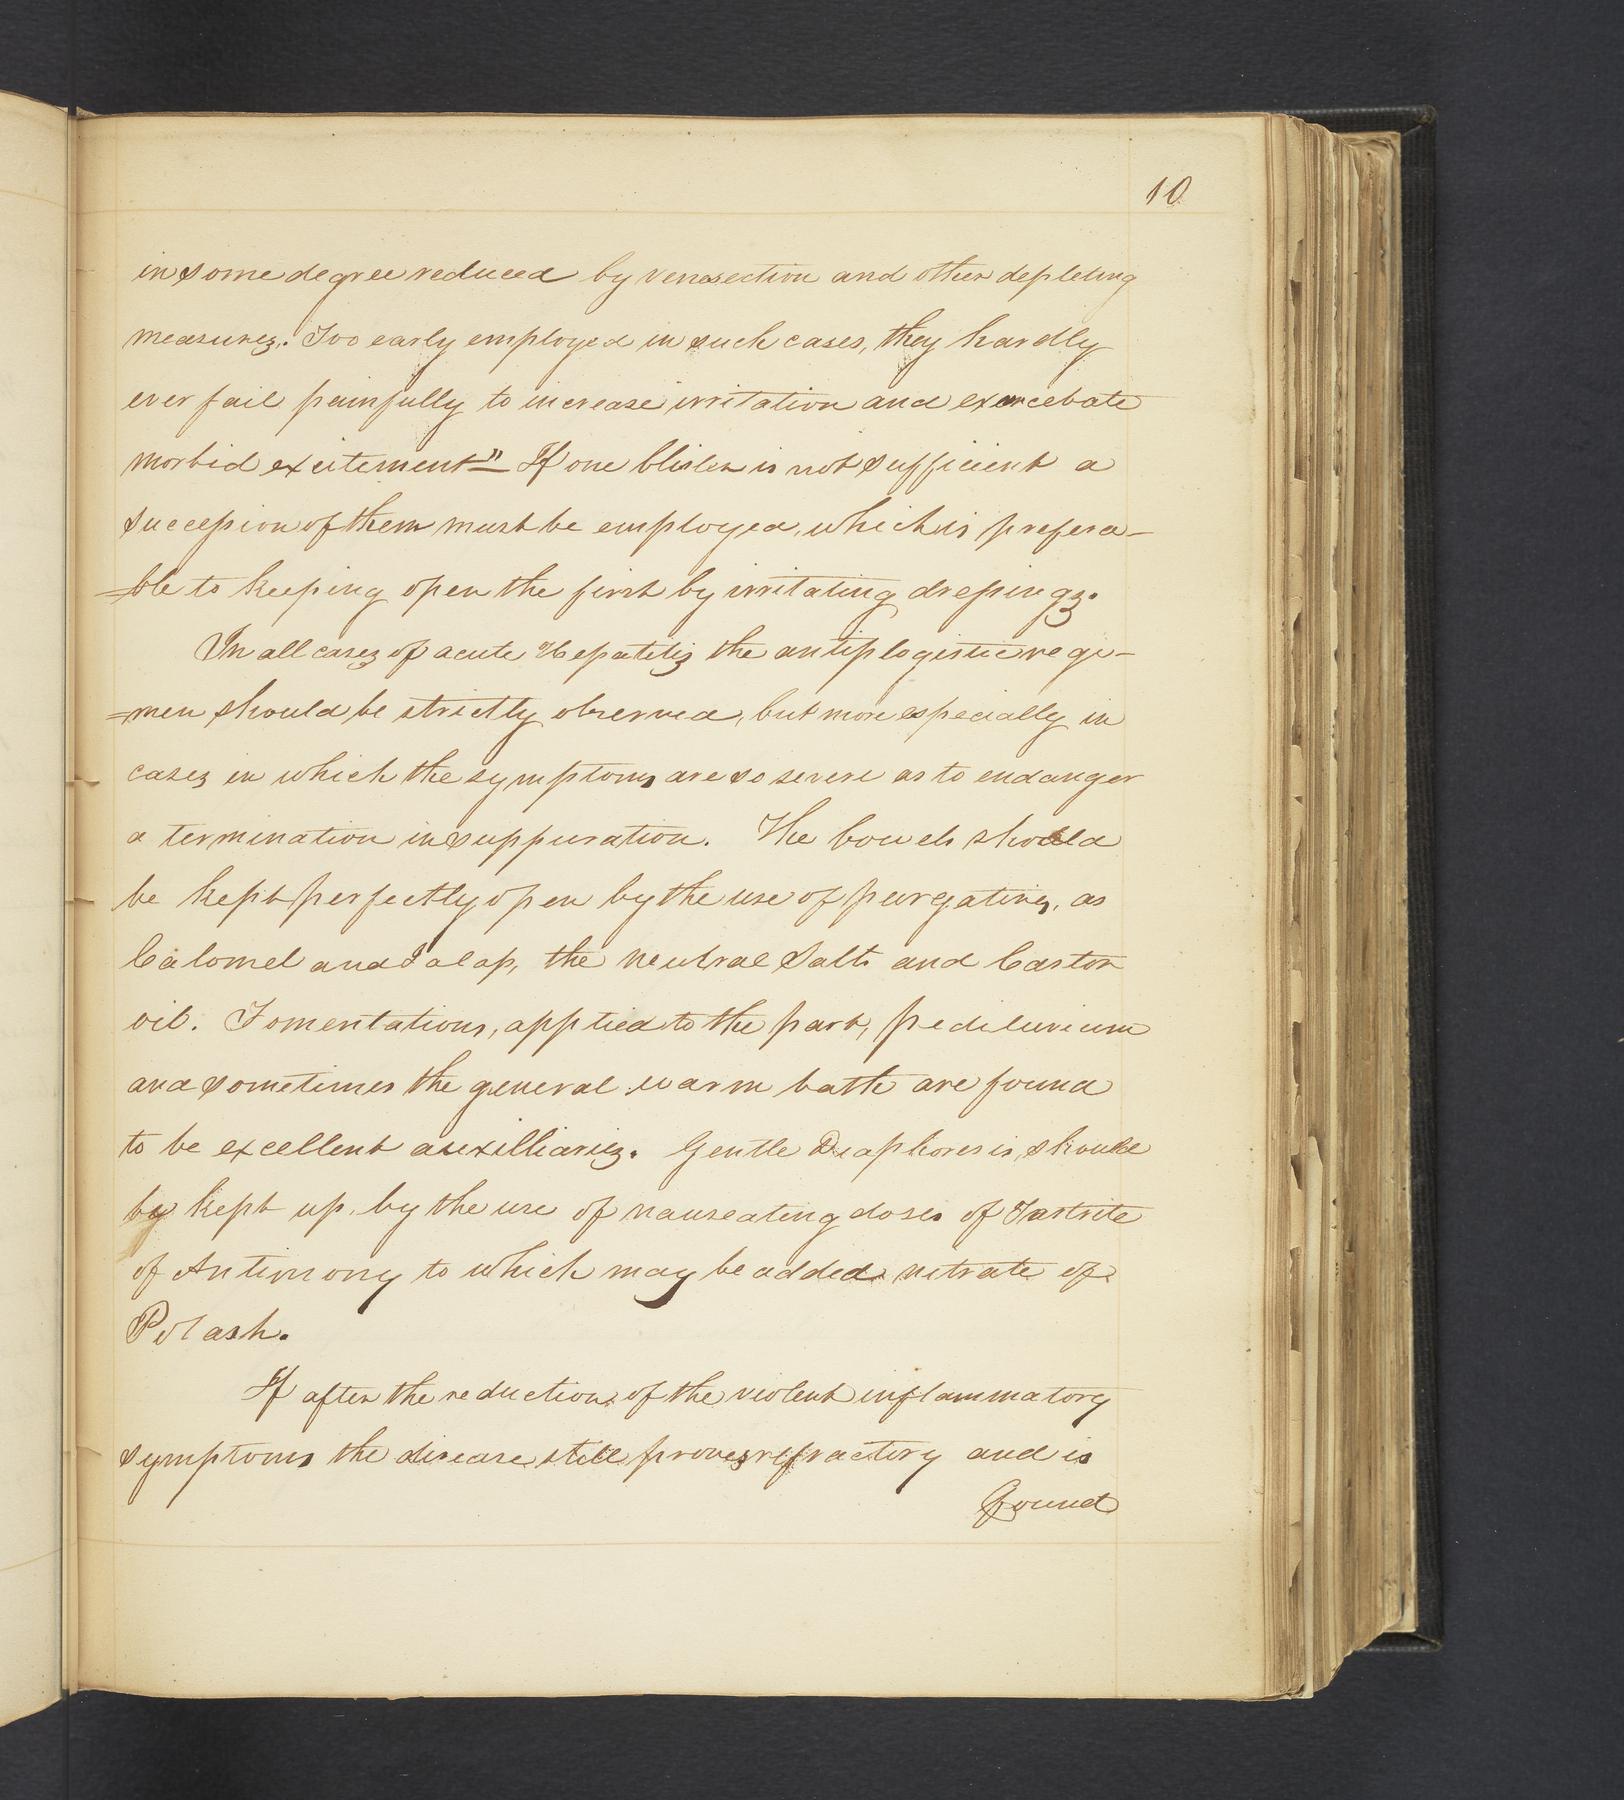 10
in some degree reduced by venesection and other depleting
measures. Too early employed in such cases, they hardly
ever fail painfully to increase irritation and exacebate
morbid excitement" If one blister is not sufficient a
succession of them must be employed, which is prefera-
=ble to keeping open the first by irritating dressings.
In all cases of acute Hepatitis the antiplogistic regi-
=men should be strictly observed, but more especially in
cases in which the symptoms are so severe as to endanger
a termination in suppuration. The bowels should
be kept perfectly open by the use of purgatives, as
Calomel and Jalap, the neutral Salts and Castor
oil. Fomentations, applied to the part, pediluvium
and sometimes the general warm bath are found
to be excellent auxilliaries. Gentle Diaphoresis, should
by kept up, by the use of nauseating doses of Tartrite
of Antimony to which may be added nitrate of
Potash.
If after the reduction of the violent inflammatory
symptoms the disease still proves refractory and is
found